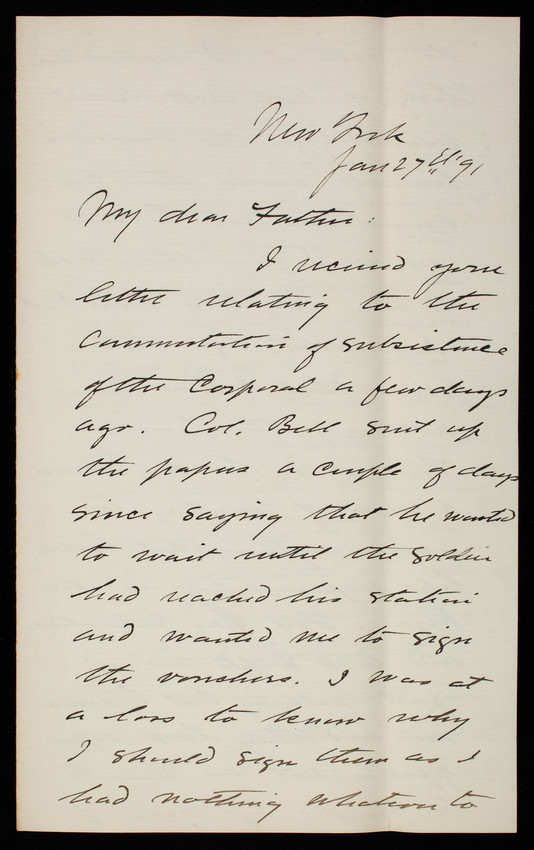 New York
Jan 27th '91
My dear Father:
I received your
letter relating to the
Commutation of subsistence
of the Corporal a few days
ago. Col. Bell sent up
the papers a couple of days
since saying that he wanted
to wait until the soldier
had reached his station
and wanted me to sign
the vouchers. I was at
a loss to know why
I should sign them as I
had nothing whatever to